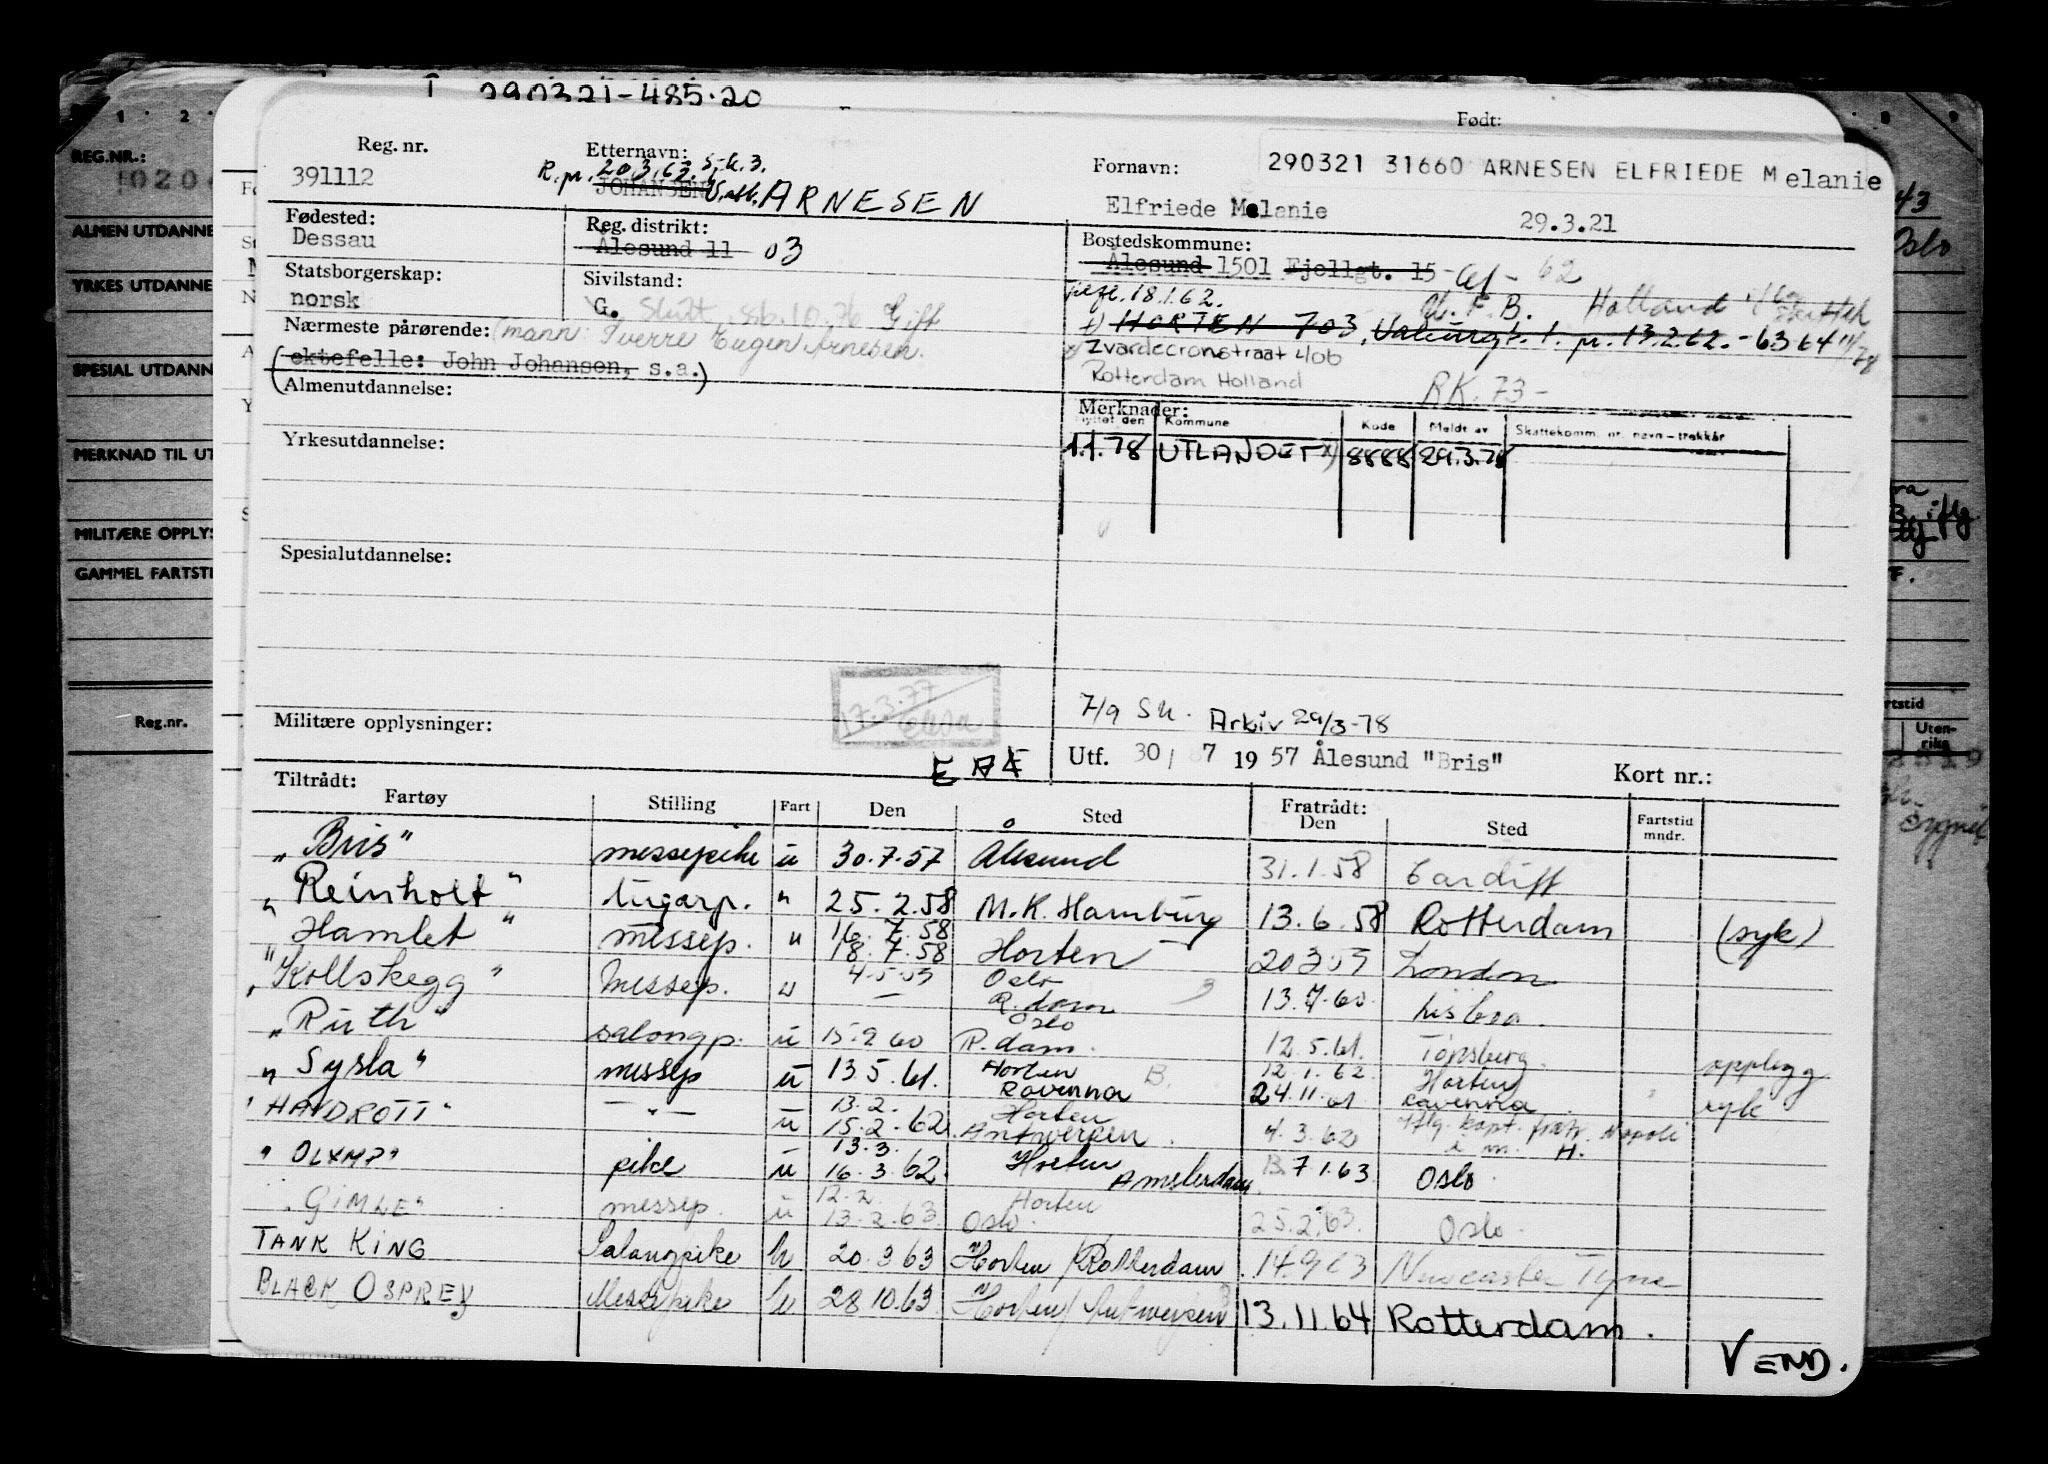 290321-485.20
Født:
Reg. nr.
Etternavn:
Fornavn:
290321 31660 ARNESEN ELFRIEDE Melanie
391112
R.pr. 20.3.63. s.k.3.
JOHANSEN
ARNESEN
Elfriede Melanie
29.3.21
Fødested:
Dessau
Reg. distrikt:
Ålesund 11 03
Bostedskommune:
Ålesund 1501 Fjellgt. 15 - 62
Statsborgerskap:
norsk
Sivilstand:
G. Gift
18.1.62.
Holland
HORTEN 703, pr. 13.2.62. - 63 64
Nærmeste pårørende: (mann: Sverre Eugen Arnesen.
(ektefelle: John Johansen, s.a.)
Rotterdam Holland
RK. 73 -
Almenutdannelse:
Merknader:
Flyttet den Kommune Kode Meldt av Skattekomm. nr. navn - trekkår
Yrkesutdannelse:
1.1.78 UTLANDET x) 8888 29.3.78
Spesialutdannelse:
17.3.77
Militære opplysninger:
7/9 Sk. Arkiv 29/3-78
Utf. 30/ 7 1957 Ålesund "Bris"
Kort nr.:
Tiltrådt:
Fartøy Stilling Fart Den Sted Fratrådt: Den Sted Fartstid mndr.
"Bris" messepike u 30.7.57 Ålesund 31.1.58 Cardiff
"Reinholt" lugarp. " 25.2.58 M.K. Hamburg 13.6.58 Rotterdam (syk)
"Hamlet" messep. " 16.7.58 18.7.58 Horten London
"Kollskegg" Messep. u Oslo R.dam 13.7.60 Lisboa.
"Ruth" salongp. u 15.9.60 Oslo R.dam. 12.5.61. Tønsberg. opplegg
"Sysla" messep u 13.5.61. Horten Ravenna B. 12.1.62 24.11.61 Horten Ravenna syk
"HAVDROTT" —"— u 13.2. 15.2.62 Horten Antwerpen. 4.3.62 Napoli
"OLYMP" pike u 13.3. 16.3.62 Horten Amsterdam 7.1.63 Oslo
"GIMLE" messep. u 12.2. 13.2.63 Horten Oslo. 25.2.63. Oslo.
TANK KING Salongpike u 20.3.63 Horten/Rotterdam 14.9.63 Newcastle Tyne
BLACK OSPREY Messepike u 28.10.63 Horten/Antwerpen 13.11.64 Rotterdam.
VEND.
REG.NR.:
ALMEN UTDANNE
YRKES UTDANNE
SPESIAL UTDANN
MERKNAD TIL UT
MILITÆRE OPPLYS
GAMMEL FARTSTI
Reg.nr.
43
Oslo
rtstid
Uten-
riks